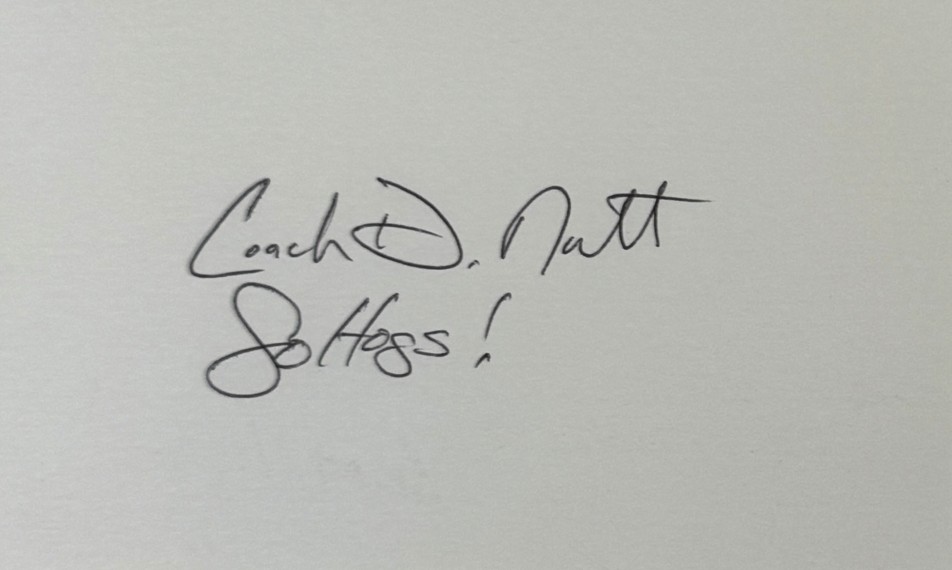 Coach D. Nutt
Go Hogs!